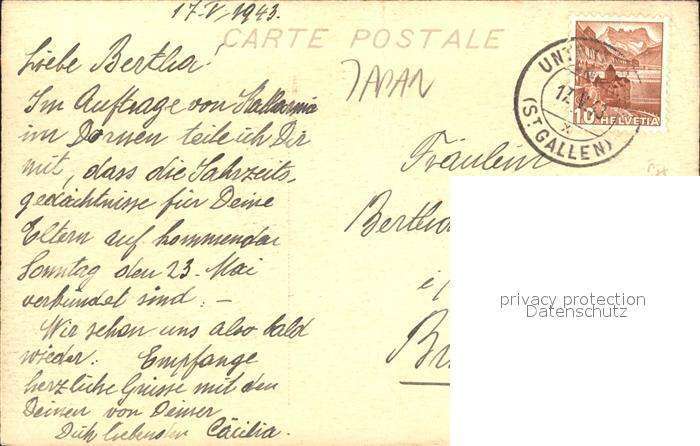 17. V. 1943.
CARTE POSTALE
JAPAN
Liebe Bertha!
Im Auftrage von
im Dornen teile ich Dir
mit, dass die Jahrzeits-
gedächtnisse für Deine
Eltern auf kommenden
Sonntag den 23. Mai
verkündet sind. –
Wir sehen uns also bald
wieder. Empfange
herzliche Grüsse mit den
Deinen von Deiner
Dich liebenden Cäcilia.
Fräulein
Bertha
i/
UNT
17. V. 43
(ST. GALLEN)
10 HELVETIA
privacy protection
Datenschutz